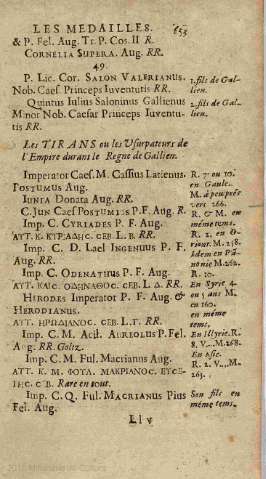 LES MEDAILLES. 653
& P. Fel. Aug. Tr. P. Cos. II R.
CORNELIA SUPERA. Aug. RR.
49.
P. Lic. Cor. SALON VALERIANUS. 1. fils de Gal-
Nob. Caes Princeps Iuventutis RR. lien.
Quintus Iulius Saloninus Gallienus 2. fils de Gal-
Minor Nob. Caesar Princeps Iuventu- lien.
tis RR.
Les TIRANS ou les Usurpateurs de
l'Empire durant le Regne de Gallien.
Imperator Caes. M. Cassius Latienus R. 7 ou 10.
POSTUMUS Aug. en Gaule.
IUNIA Donata Aug. RR. M. à peu prés vers 266.
C. JUN Caes POSTUMUS P. F. Aug. R. R. & M. en
Imp. C. CYRIADES P. F. Aug. même tems.
ΑΥΤ. Κ. ΚΥΡΙΑΔΗC. ceb L. B. RR. R. 2. en O-
Imp. C. D. Lael INGENUUS P. F. rient. M. 258.
Aug. RR. Idem en Pannonie M. 260.
Imp. C. ODENATHUS P. F. Aug. R. 10.
ΑΥΤ. ΚΑΙC. ΟΔΗΝΑΘΟC. ceb L. Δ RR. En Syrie 4.
HERODES Imperator P. F. Aug & ou 5 ans M.
HERODIANUS. en 160.
ΑΥΤ. ΗΡΩΔΙΑΝΟC. ceb L. Γ. RR. en même tems.
Imp. C. M. Acil. AUREOLUS P. Fel. En Illyrie. R.
Aug. RR. Goltz. 8. V... M. 268.
Imp. C. M. Ful. Macrianus Aug. En Asie.
ΑΥΤ. Κ. Μ. ΦΟΥΛ. ΜΑΚΡΙΑΝΟC. ΕΥCΕ- R. 2. V... M.
ΒΗC. C B. Rare en tout. 263.
Imp. C. Q. Ful. MACRIANUS Pius Son fils en
Fel. Aug. même tems.
Ll v